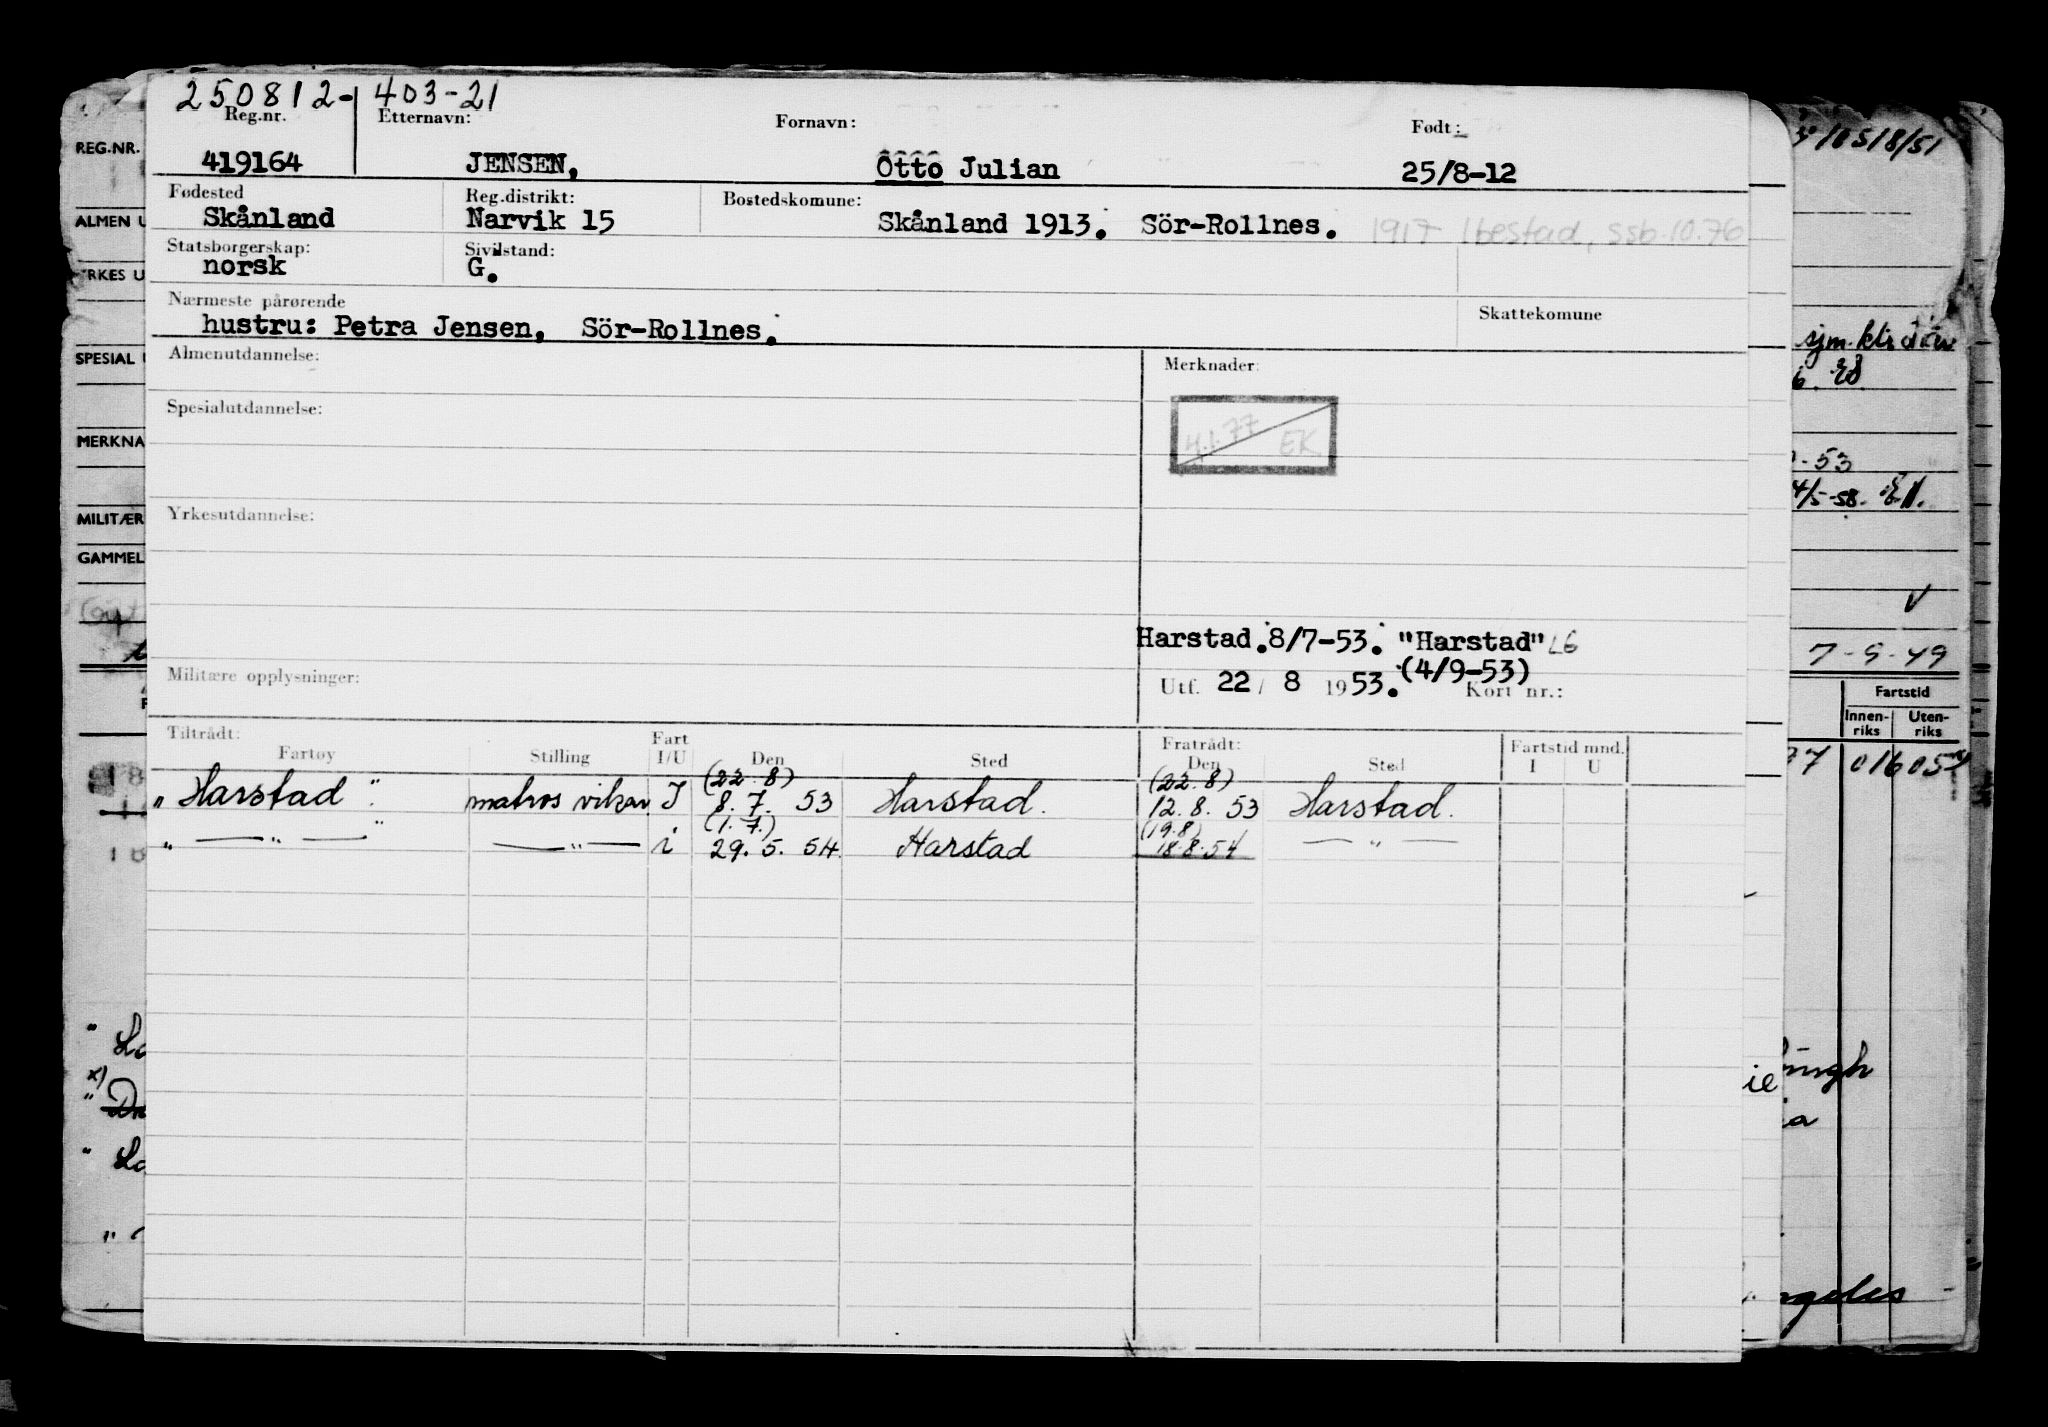 250812-403-21
Reg.nr. Etternavn: Fornavn: Født:
419164 JENSEN, Otto Julian 25/8-12
Fødested Reg.distrikt: Bostedskomune:
Skånland Narvik 15 Skånland 1913. Sör-Rollnes. 1917 Ibestad, ssb.10.76
Statsborgerskap: Sivilstand:
norsk G.
Nærmeste pårørende Skattekomune
hustru: Petra Jensen, Sör-Rollnes.
Almenutdannelse: Merknader:
Spesialutdannelse:
4.1.77 EK
Yrkesutdannelse:
Harstad.8/7-53. "Harstad" LG
(4/9-53)
Militære opplysninger: Utf. 22/ 8 1953. Kort nr.:
Tiltrådt: Fratrådt:
Fartøy Stilling Fart I/U Den Sted Den Sted Fartstid mnd. I U
(22.8) (22.8)
"Harstad". matros vikar I 8.7. 53 Harstad. 12.8.53 Harstad.
(1.7.) (19.8)
" — " — " — " — i 29.5.54 Harstad 18.8.54 — " —
REG.NR.
ALMEN U
YRKES U
SPESIAL U
MERKNA
MILITÆR
GAMMEL
10518/51
sjm. klr
-53
4/5-58.
V
7-9-49
Fartstid
Innen-riks Uten-riks
016 05
ie
ngeles